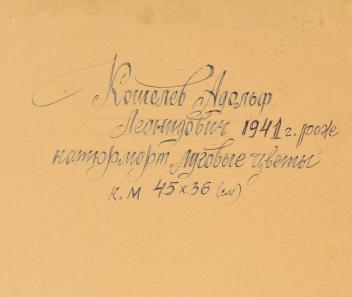 Кошелев Адольф
Леонидович 1941 г. рожд
натюрморт „Луговые цветы
к.м 45х36 (см)